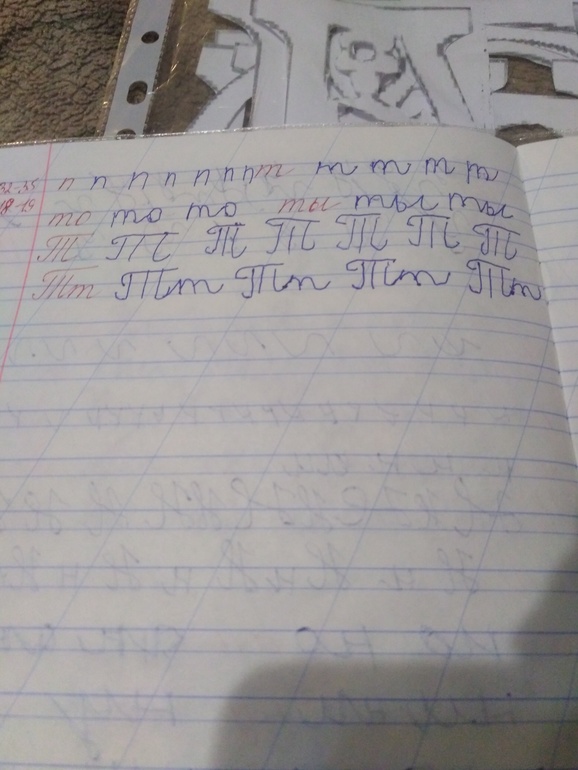 32-35 п п п п п п п т т т т т
18-19 то то то ты ты ты
Т Т Т Т Т Т Т
Тт Тт Тт Тт Тт